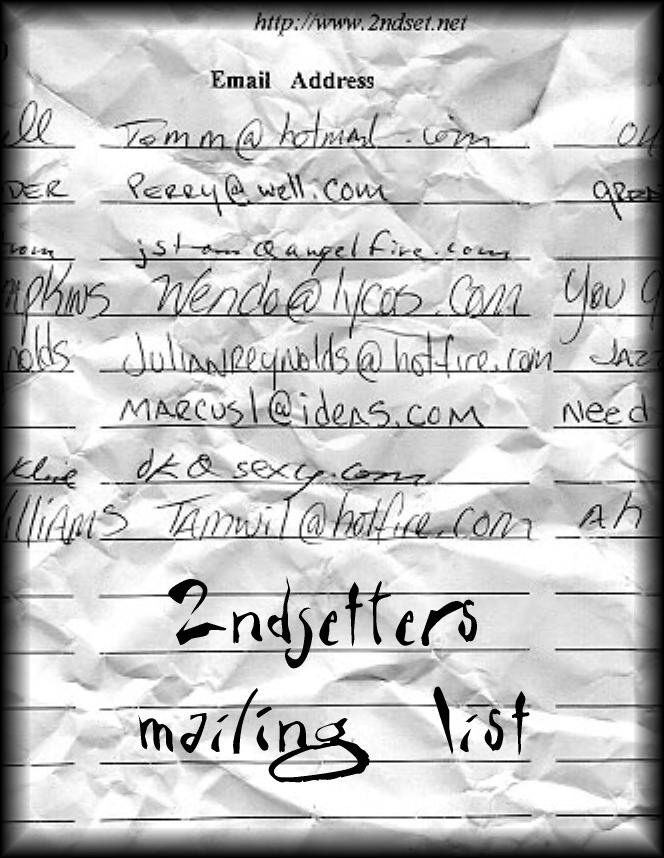 http://www.2ndset.net
Email Address
ell Tomm@hotmail.com
DER PERRY@well.com
jstrom@angelfire.com
mpkins Wendo@lycos.com You g
nolds JulianReynolds@hotfire.com Jaz
MARCUS1@ideas.com Need
Kline dk@sexy.com
illiams Tamwil@hotfire.com Ah
2ndsetters
mailing list